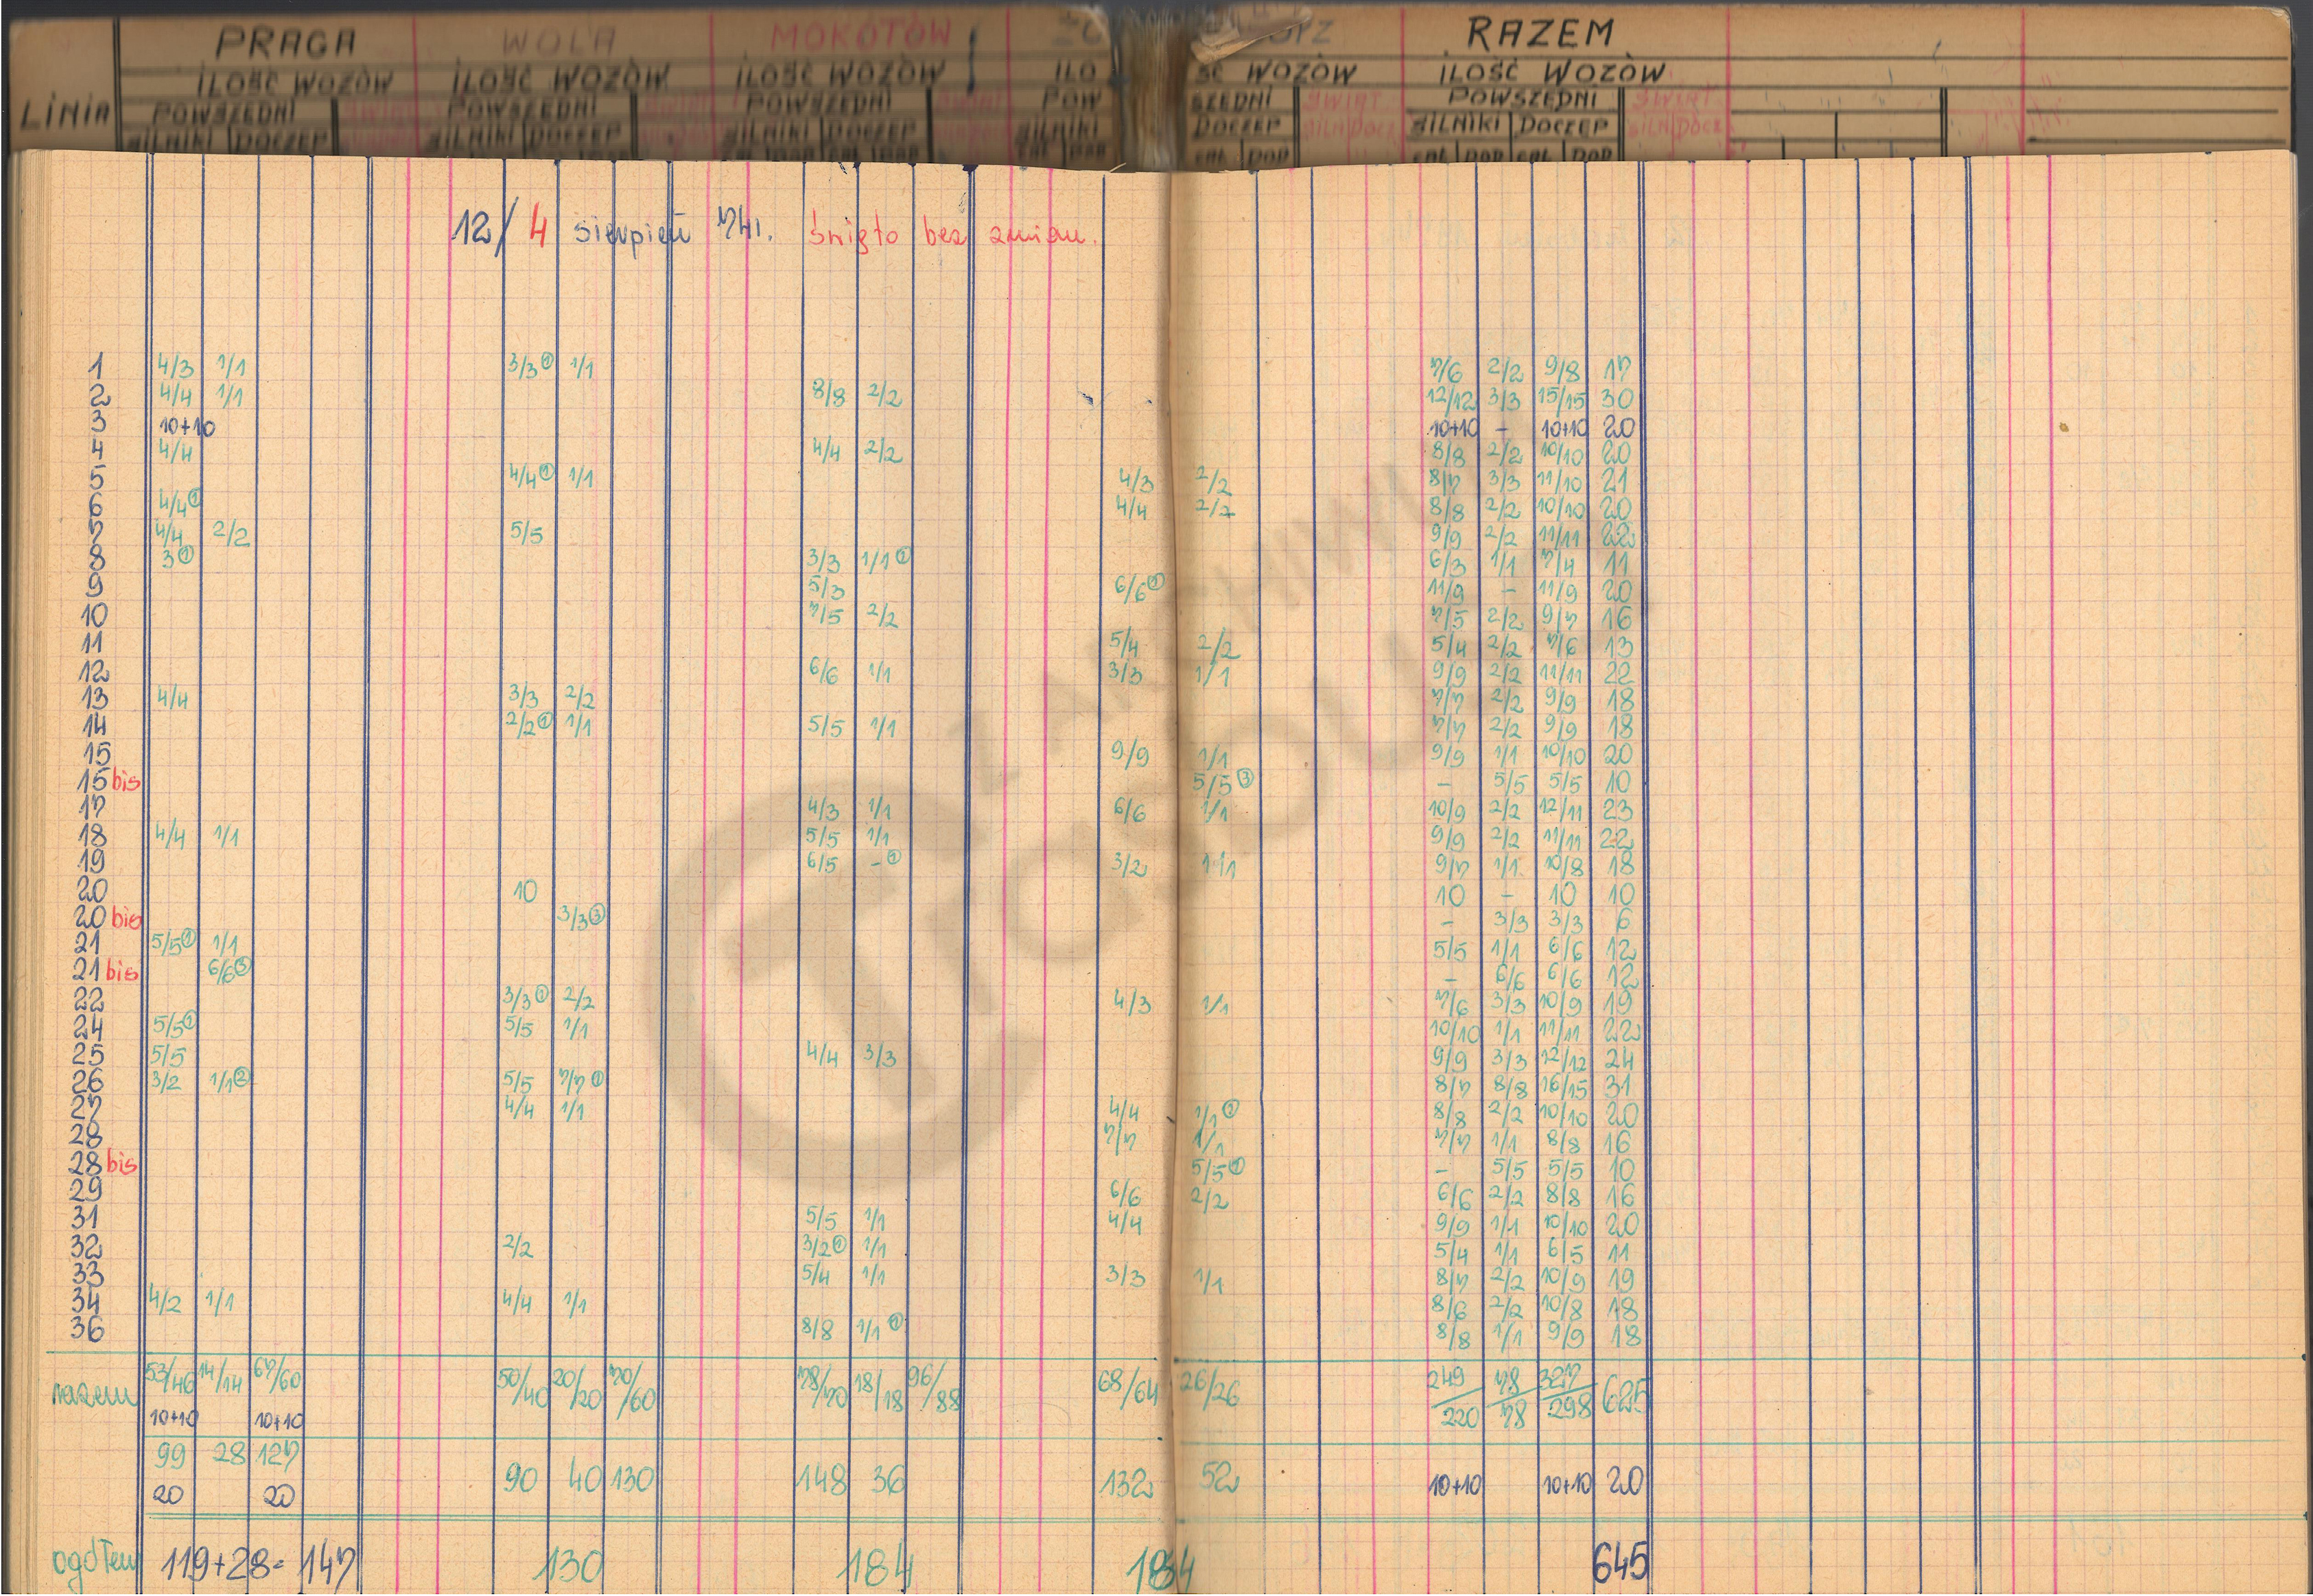 PRAGA WOLA MOKOTÓW RAZEM
ILOŚĆ WOZÓW ILOŚĆ WOZÓW ILOŚĆ WOZÓW ILO ŚĆ WOZÓW ILOŚĆ WOZÓW
LINIA POWSZEDNI POWSZEDNI POWSZEDNI POW SZEDNI ŚWIĄT POWSZEDNI ŚWIĄT
SILNIKI DOCZEP SILNIKI DOCZEP SILNIKI DOCZEP SILNIKI DOCZEP SILN DOCZ SILNIKI DOCZEP SILN DOCZ
CAŁ DOD CAŁ DOD CAŁ DOD CAŁ DOD
12/4 sierpień 74r. święto bez zmian.
1 4/3 1/1 3/3① 1/1 7/6 2/2 9/8 17
2 4/4 1/1 8/8 2/2 12/12 3/3 15/15 30
3 10+10 10+10 - 10+10 20
4 4/4 4/4 2/2 8/8 2/2 10/10 20
5 4/4① 1/1 4/3 2/2 8/7 3/3 11/10 21
6 4/4① 4/4 2/2 8/8 2/2 10/10 20
7 4/4 2/2 5/5 9/9 2/2 11/11 22
8 3① 3/3 1/1① 6/3 1/1 7/4 11
9 5/3 6/6② 11/9 - 11/9 20
10 7/5 2/2 7/5 2/2 9/7 16
11 5/4 2/2 5/4 2/2 7/6 13
12 6/6 1/1 3/3 1/1 9/9 2/2 11/11 22
13 4/4 3/3 2/2 7/7 2/2 9/9 18
14 2/2① 1/1 5/5 1/1 7/7 2/2 9/9 18
15 9/9 1/1 9/9 1/1 10/10 20
15 bis 5/5③ - 5/5 5/5 10
17 4/3 1/1 6/6 1/1 10/9 2/2 12/11 23
18 4/4 1/1 5/5 1/1 9/9 2/2 11/11 22
19 6/5 -① 3/2 1/1 9/7 1/1 10/8 18
20 10 10 - 10 10
20 bis 3/3③ - 3/3 3/3 6
21 5/5① 1/1 5/5 1/1 6/6 12
21 bis 6/6③ - 6/6 6/6 12
22 3/3① 2/2 4/3 1/1 7/6 3/3 10/9 19
24 5/5① 5/5 1/1 10/10 1/1 11/11 22
25 5/5 4/4 3/3 9/9 3/3 12/12 24
26 3/2 1/1② 5/5 7/7① 8/7 8/8 16/15 31
27 4/4 1/1 4/4 1/1① 8/8 2/2 10/10 20
28 7/7 1/1 7/7 1/1 8/8 16
28 bis 5/5① - 5/5 5/5 10
29 6/6 2/2 6/6 2/2 8/8 16
31 5/5 1/1 4/4 9/9 1/1 10/10 20
32 2/2 3/2① 1/1 5/4 1/1 6/5 11
33 5/4 1/1 3/3 1/1 8/7 2/2 10/9 19
34 4/2 1/1 4/4 1/1 8/6 2/2 10/8 18
36 8/8 1/1① 8/8 1/1 9/9 18
razem 53/46 14/14 67/60 50/40 20/20 70/60 78/70 18/18 96/88 68/64 26/26 249/220 78/78 327/298 625
10+10 10+10
99 28 127 90 40 130 148 36 132 52 10+10 10+10 20
20 20
ogółem 119+28= 147 130 184 184 645
Z ARCHIWUM